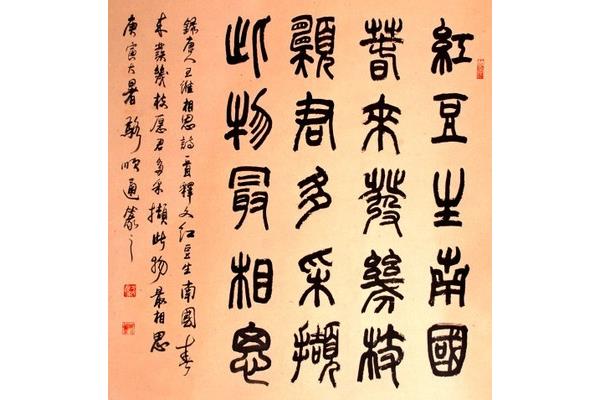 紅豆生南國
春來發幾枝
願君多采擷
此物最相思
錄唐人王維相思詩一首釋文紅豆生南國春
来發幾枝愿君多采擷此物最相思
庚寅大暑順通篆之